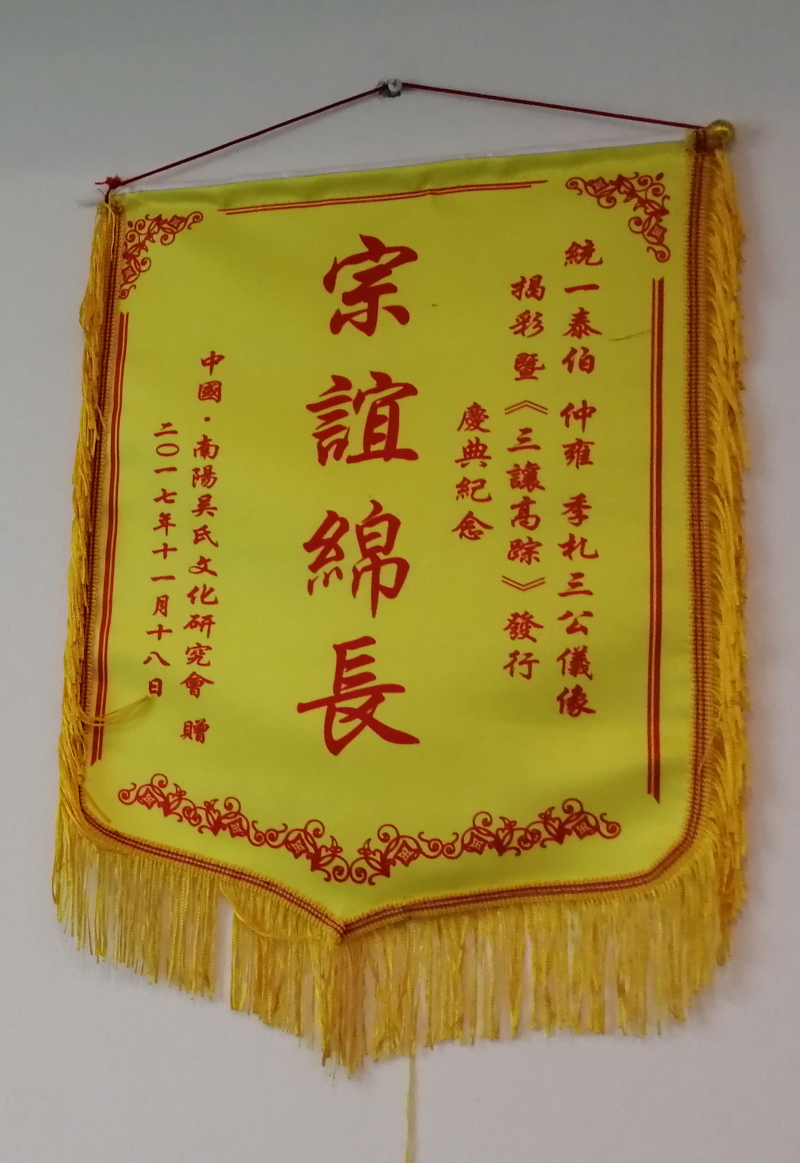 統一泰伯 仲雍 季札三公儀像
揭彩暨《三讓高踪》發行
慶典紀念
宗誼綿長
中國·南陽吴氏文化研究會 贈
二〇一七年十一月十八日